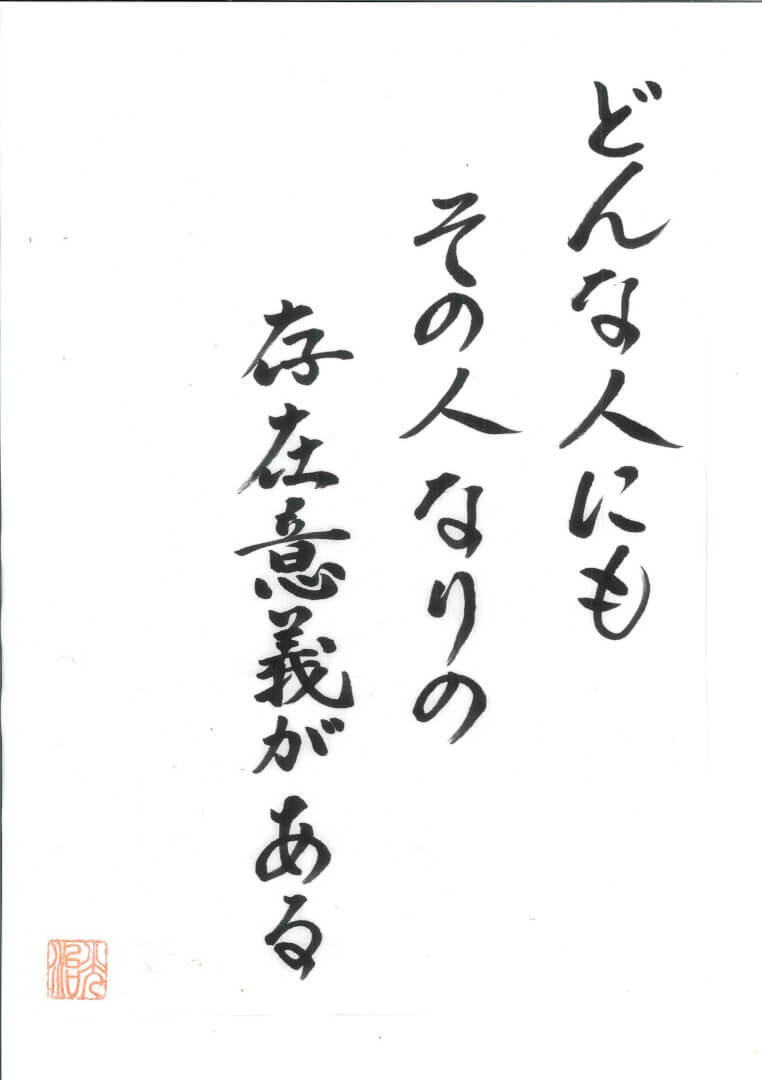 どんな人にも
その人なりの
存在意義がある